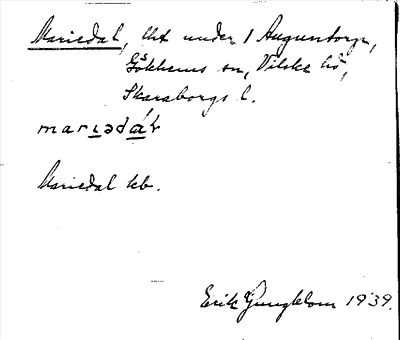 Mariedal, lht under 1 Augustorp,
Gökhems sn, Vilske hd,
Skaraborgs l.
marıədáɫ
Mariedal kb.
Erik Ljungblom 1939.